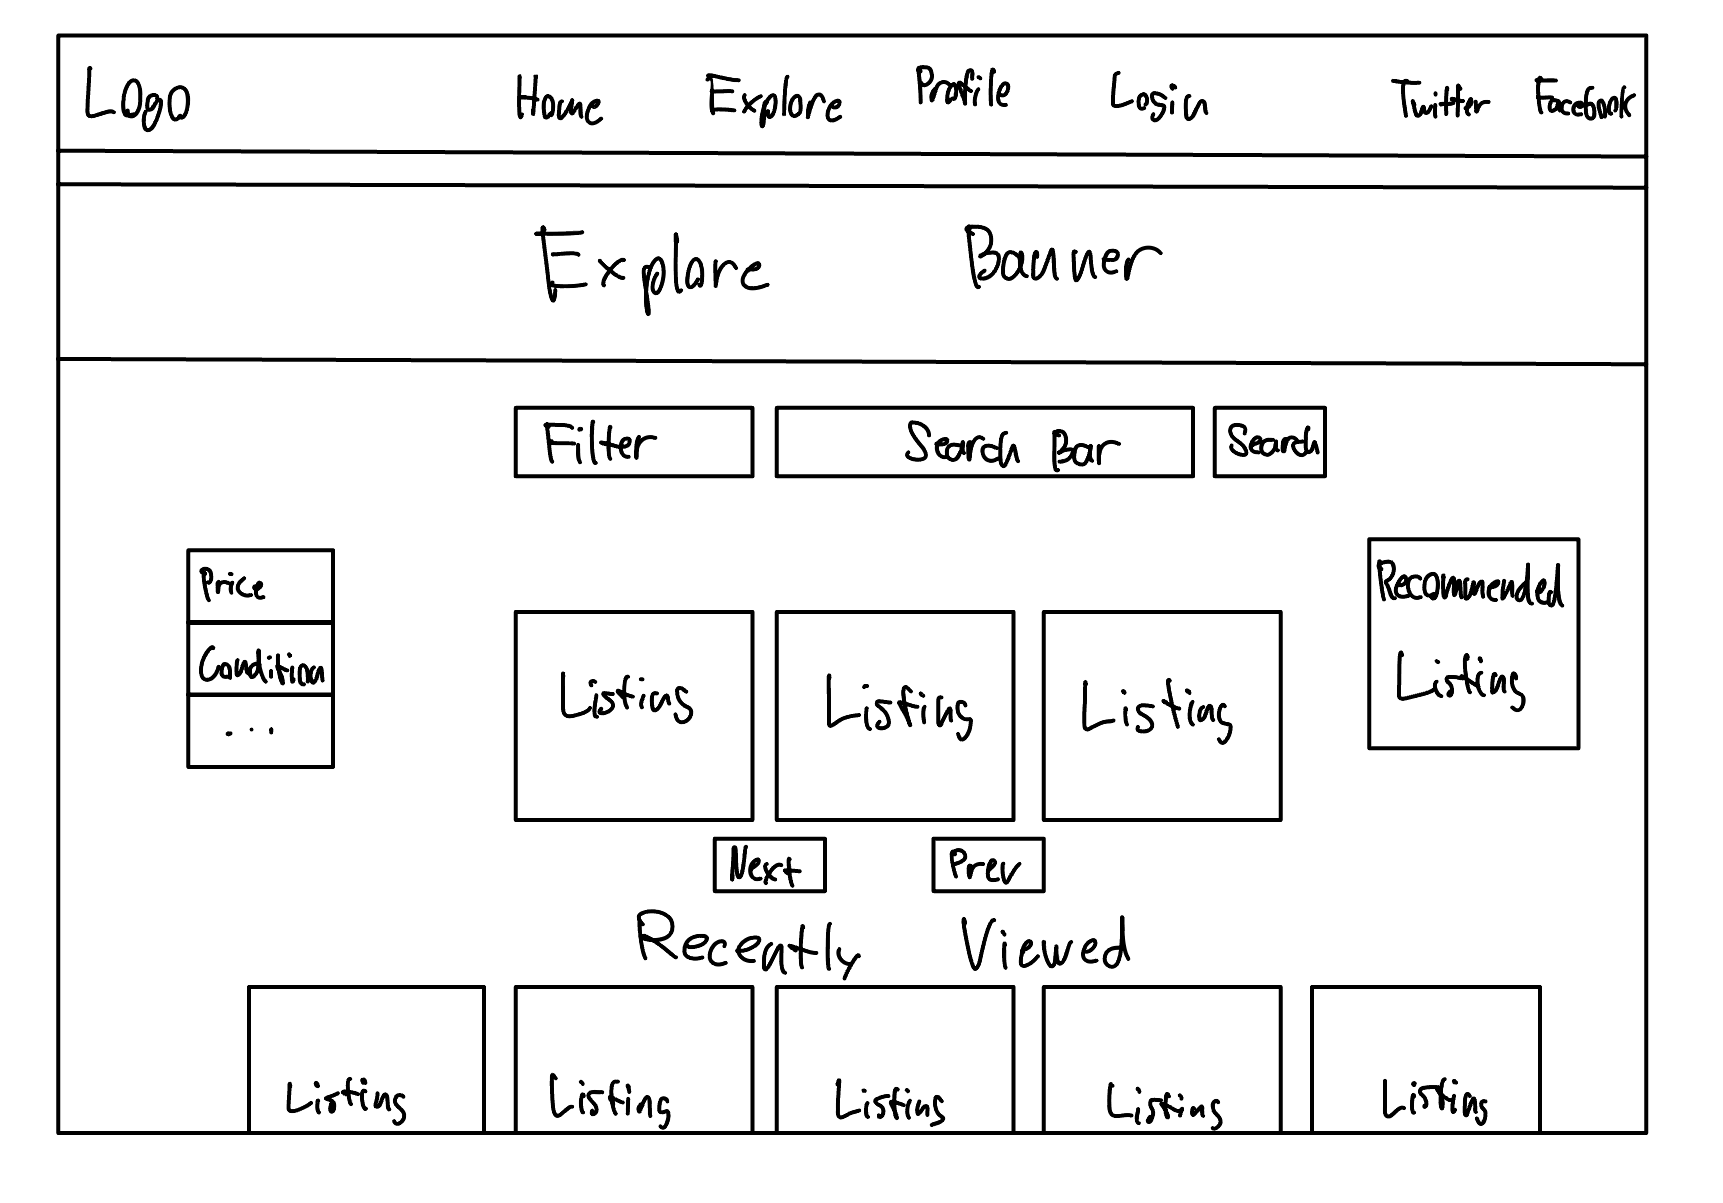 Logo Home Explore Profile Login Twitter Facebook
Explore Banner
Filter Search Bar Search
Price
Condition
...
Listing Listing Listing
Recommended
Listing
Next Prev
Recently Viewed
Listing Listing Listing Listing Listing